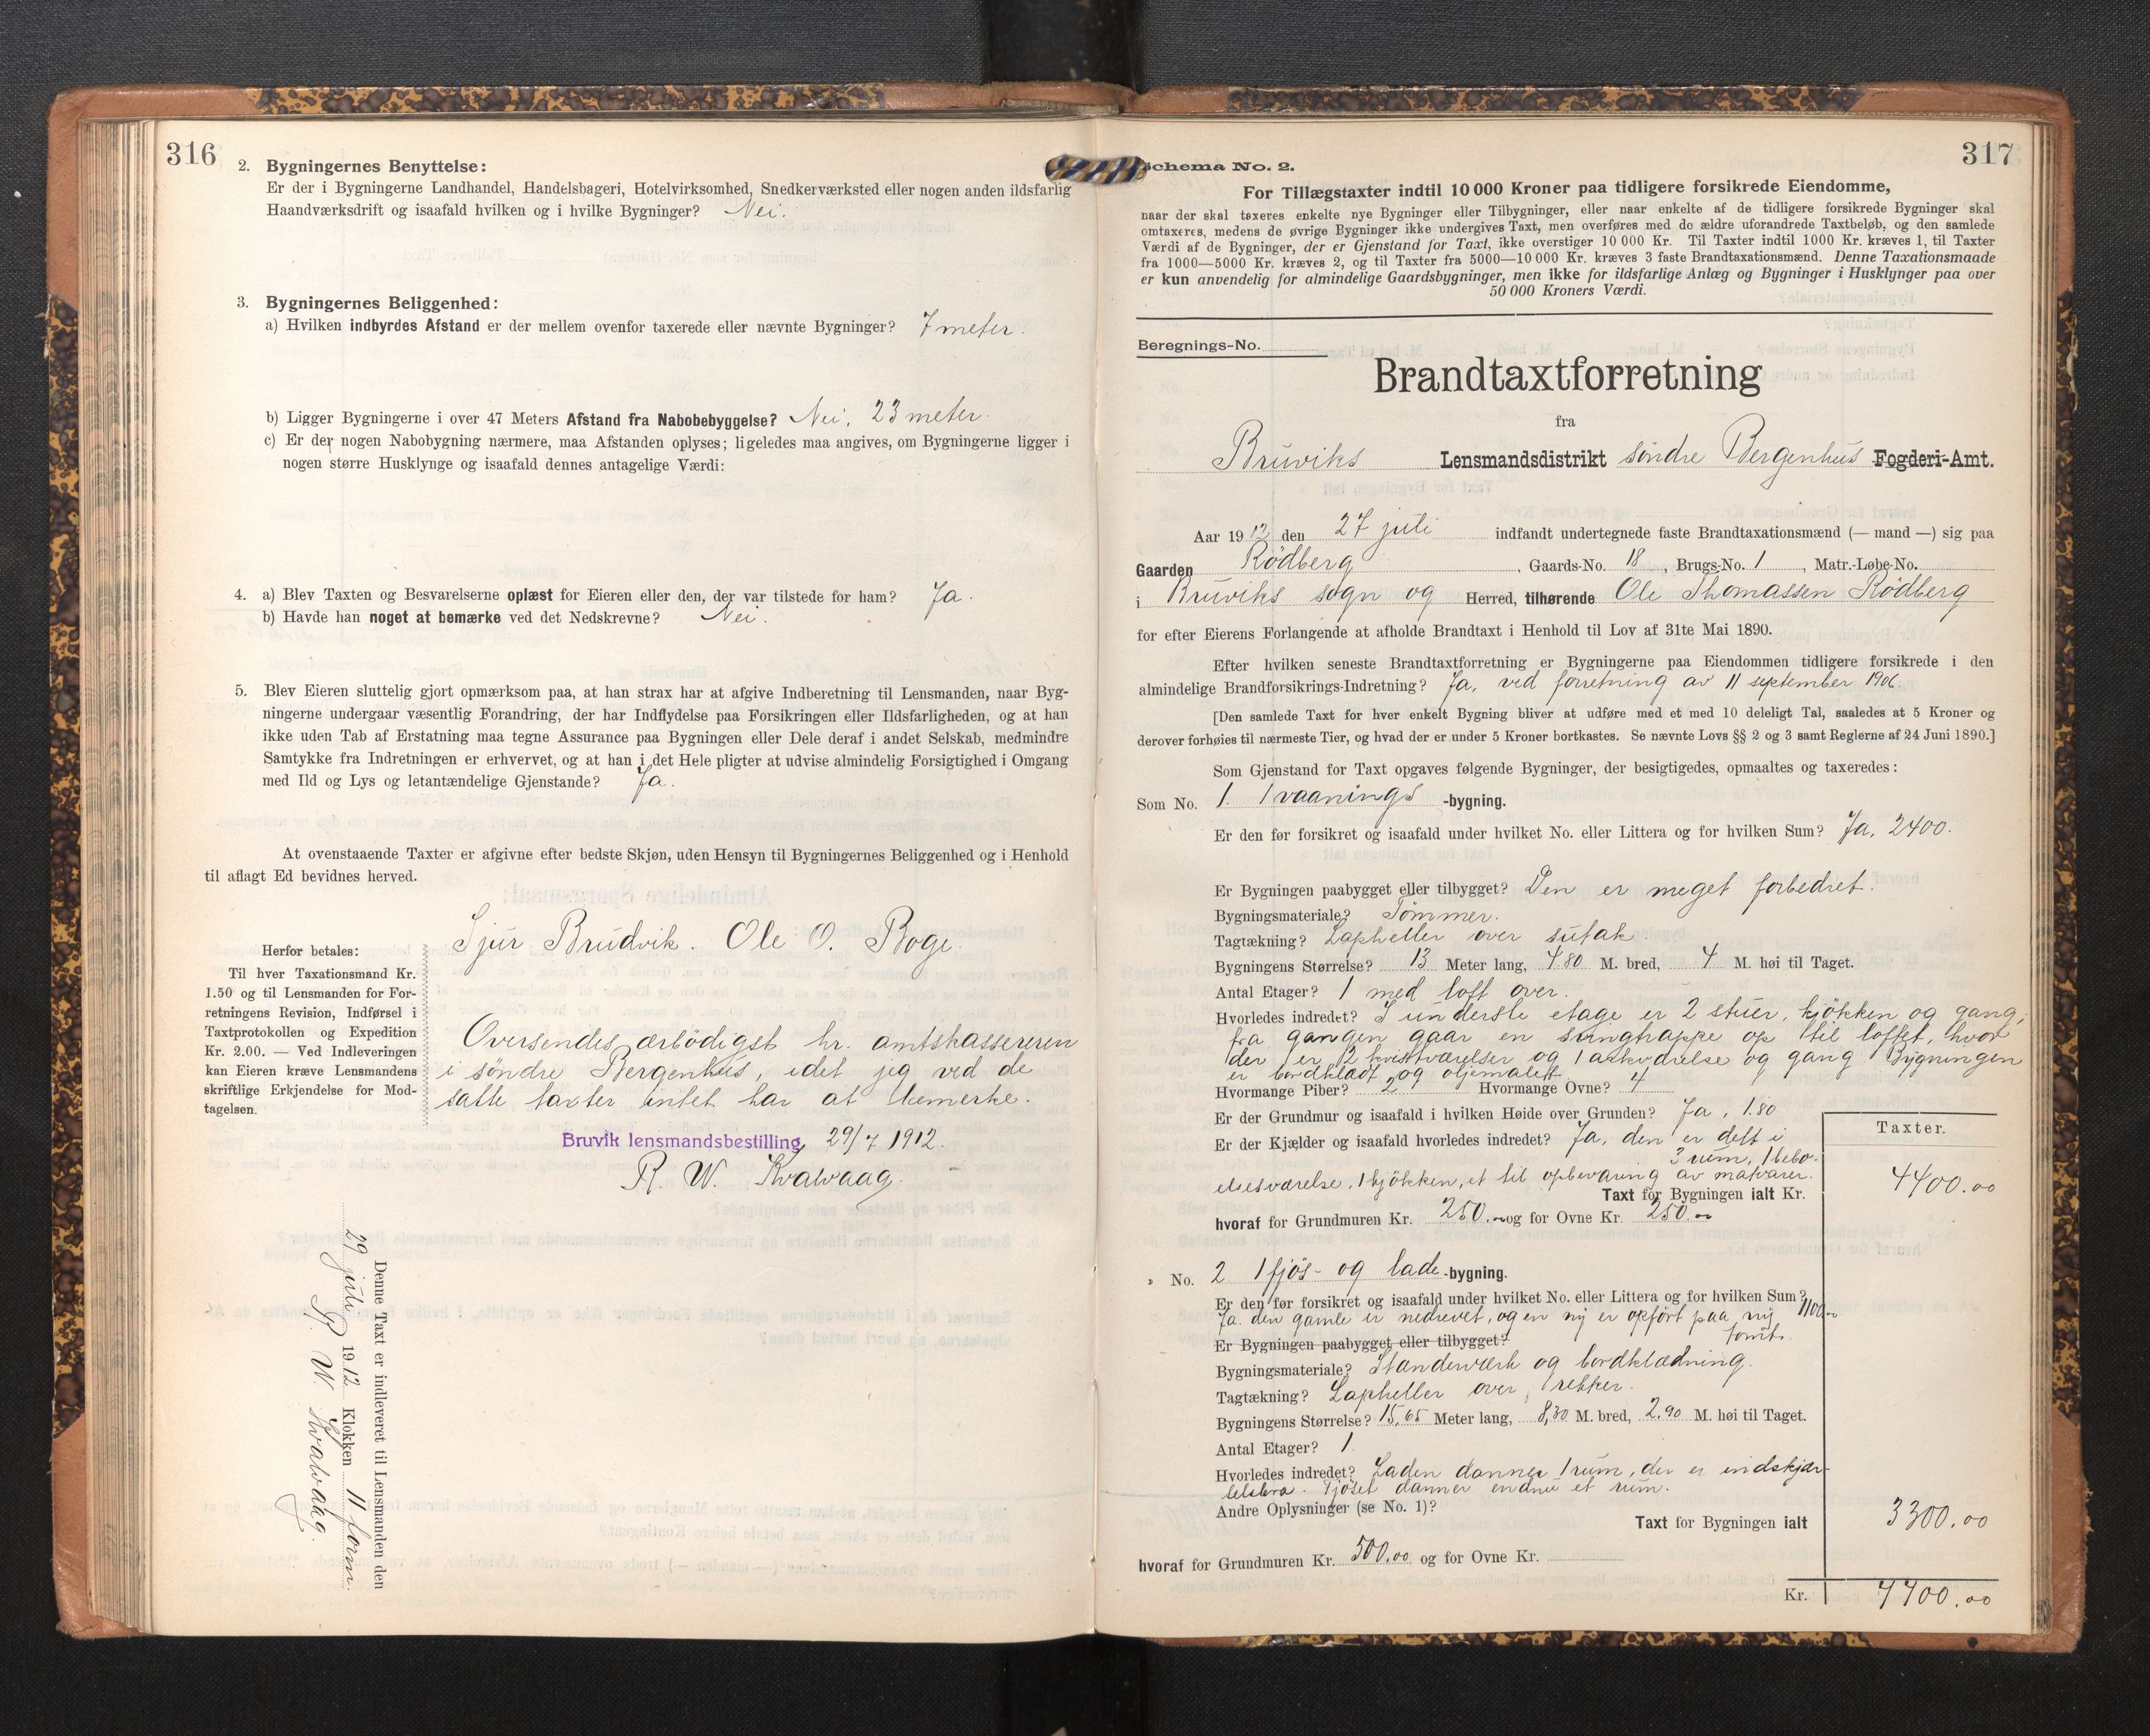 316
2. Bygningernes Benyttelse:
Er der i Bygningerne Landhandel, Handelsbageri, Hotelvirksomhed, Snedkerværksted eller nogen anden ildsfarlig
Haandværksdrift og isaafald hvilken og i hvilke Bygninger? Nei.
3. Bygningernes Beliggenhed:
a) Hvilken indbyrdes Afstand er der mellem ovenfor taxerede eller nævnte Bygninger? 7 meter.
b) Ligger Bygningerne i over 47 Meters Afstand fra Nabobebyggelse? Nei, 23 meter.
c) Er der nogen Nabobygning nærmere, maa Afstanden oplyses; ligeledes maa angives, om Bygningerne ligger i
nogen større Husklynge og isaafald dennes antagelige Værdi:
4. a) Blev Taxten og Besvarelserne oplæst for Eieren eller den, der var tilstede for ham? Ja.
b) Havde han noget at bemærke ved det Nedskrevne? Nei.
5. Blev Eieren sluttelig gjort opmærksom paa, at han strax har at afgive Indberetning til Lensmanden, naar Byg-
ningerne undergaar væsentlig Forandring, der har Indflydelse paa Forsikringen eller Ildsfarligheden, og at han
ikke uden Tab af Erstatning maa tegne Assurance paa Bygningen eller Dele deraf i andet Selskab, medmindre
Samtykke fra Indretningen er erhvervet, og at han i det Hele pligter at udvise almindelig Forsigtighed i Omgang
med Ild og Lys og letantændelige Gjenstande? Ja.
At ovenstaaende Taxter er afgivne efter bedste Skjøn, uden Hensyn til Bygningernes Beliggenhed og i Henhold
til aflagt Ed bevidnes herved.
Sjur Brudvik. Ole O. Boge.
Herfor betales:
Til hver Taxationsmand Kr.
1.50 og til Lensmanden for For-
retningens Revision, Indførsel i
Taxtprotokollen og Expedition
Kr. 2.00. — Ved Indleveringen
kan Eieren kræve Lensmandens
skriftlige Erkjendelse for Mod-
tagelsen.
Oversendes ærbödigst hr. amtskassereren
i söndre Bergenhus, idet jeg ved de
satte taxter intet har at bemerke.
Bruvik lensmandsbestilling 29/7 1912.
R. W. Kvalvaag.
Denne Taxt er indleveret til Lensmanden den
29 juli 1912 Klokken 11 form.
R. W. Kvalvaag.
317
Schema No. 2.
For Tillægstaxter indtil 10 000 Kroner paa tidligere forsikrede Eiendomme,
naar der skal taxeres enkelte nye Bygninger eller Tilbygninger, eller naar enkelte af de tidligere forsikrede Bygninger skal
omtaxeres, medens de øvrige Bygninger ikke undergives Taxt, men overføres med de ældre uforandrede Taxtbeløb, og den samlede
Værdi af de Bygninger, der er Gjenstand for Taxt, ikke overstiger 10 000 Kr. Til Taxter indtil 1000 Kr. kræves 1, til Taxter
fra 1000—5000 Kr. kræves 2, og til Taxter fra 5000—10 000 Kr. kræves 3 faste Brandtaxationsmænd. Denne Taxationsmaade
er kun anvendelig for almindelige Gaardsbygninger, men ikke for ildsfarlige Anlæg og Bygninger i Husklynger paa over
50 000 Kroners Værdi.
Beregnings-No.
Brandtaxtforretning
fra
Bruviks Lensmandsdistrikt söndre Bergenhus Fogderi-Amt.
Aar 1912 den 27 juli indfandt undertegnede faste Brandtaxationsmænd (— mand —) sig paa
Gaarden Rödberg, Gaards-No. 18, Brugs-No. 1, Matr.-Løbe-No.
i Bruviks sogn og Herred, tilhørende Ole Thomassen Rödberg
for efter Eierens Forlangende at afholde Brandtaxt i Henhold til Lov af 31te Mai 1890.
Efter hvilken seneste Brandtaxtforretning er Bygningerne paa Eiendommen tidligere forsikrede i den
almindelige Brandforsikrings-Indretning? Ja, ved forretning av 11 september 1906.
[Den samlede Taxt for hver enkelt Bygning bliver at udføre med et med 10 deleligt Tal, saaledes at 5 Kroner og
derover forhøies til nærmeste Tier, og hvad der er under 5 Kroner bortkastes. Se nævnte Lovs §§ 2 og 3 samt Reglerne af 24 Juni 1890.]
Som Gjenstand for Taxt opgaves følgende Bygninger, der besigtigedes, opmaaltes og taxeredes:
Som No. 1. 1 vaanings -bygning.
Er den før forsikret og isaafald under hvilket No. eller Littera og for hvilken Sum? Ja, 2400.
Er Bygningen paabygget eller tilbygget? Den er meget forbedret.
Bygningsmateriale? Tömmer.
Tagtækning? Lapheller over sutak.
Bygningens Størrelse? 13 Meter lang, 4.80 M. bred, 4 M. høi til Taget.
Antal Etager? 1 med loft over.
Hvorledes indredet? I underste etage er 2 stuer, kjökken og gang,
fra gangen gaar en svingtrappe op til loftet, hvor
der er 2 kvistværelser og 1 arkværelse og gang Bygningen
er bordklædt og oljemalet
Hvormange Piber? 2 Hvormange Ovne? 4
Er der Grundmur og isaafald i hvilken Høide over Grunden? Ja, 1.80
Er der Kjælder og isaafald hvorledes indredet? Ja, den er delt i
3 rum, 1 bebo-
elsesværelse, 1 kjökken, et til opbevaring av matvarer.
Taxter.
Taxt for Bygningen ialt Kr. 4400.00
hvoraf for Grundmuren Kr. 250.- og for Ovne Kr. 250.-
" No. 2 1 fjös- og lade -bygning.
Er den før forsikret og isaafald under hvilket No. eller Littera og for hvilken Sum? 1100.-
Ja. den gamle er nedrevet, og en ny er opfört paa ny
tomt.
Er Bygningen paabygget eller tilbygget?
Bygningsmateriale? Standerværk og bordklædning.
Tagtækning? Lapheller over rekker.
Bygningens Størrelse? 15,65 Meter lang, 8,30 M. bred, 2.90 M. høi til Taget.
Antal Etager? 1.
Hvorledes indredet? Laden danner 1 rum, der er indskjær-
lelsbro. Fjöset danner endnu et rum.
Andre Oplysninger (se No. 1)?
Taxt for Bygningen ialt 3300.00
hvoraf for Grundmuren Kr. 500.00 og for Ovne Kr.
Kr. 7700.00